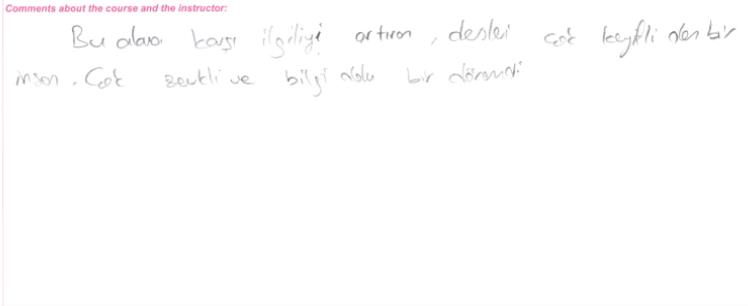 Comments about the course and the instructor:
Bu alana karşı ilgiliyi artıran, desleri çok keyfli olan bir
insan. Çok zevkli ve bilgi dolu bir dönemdi